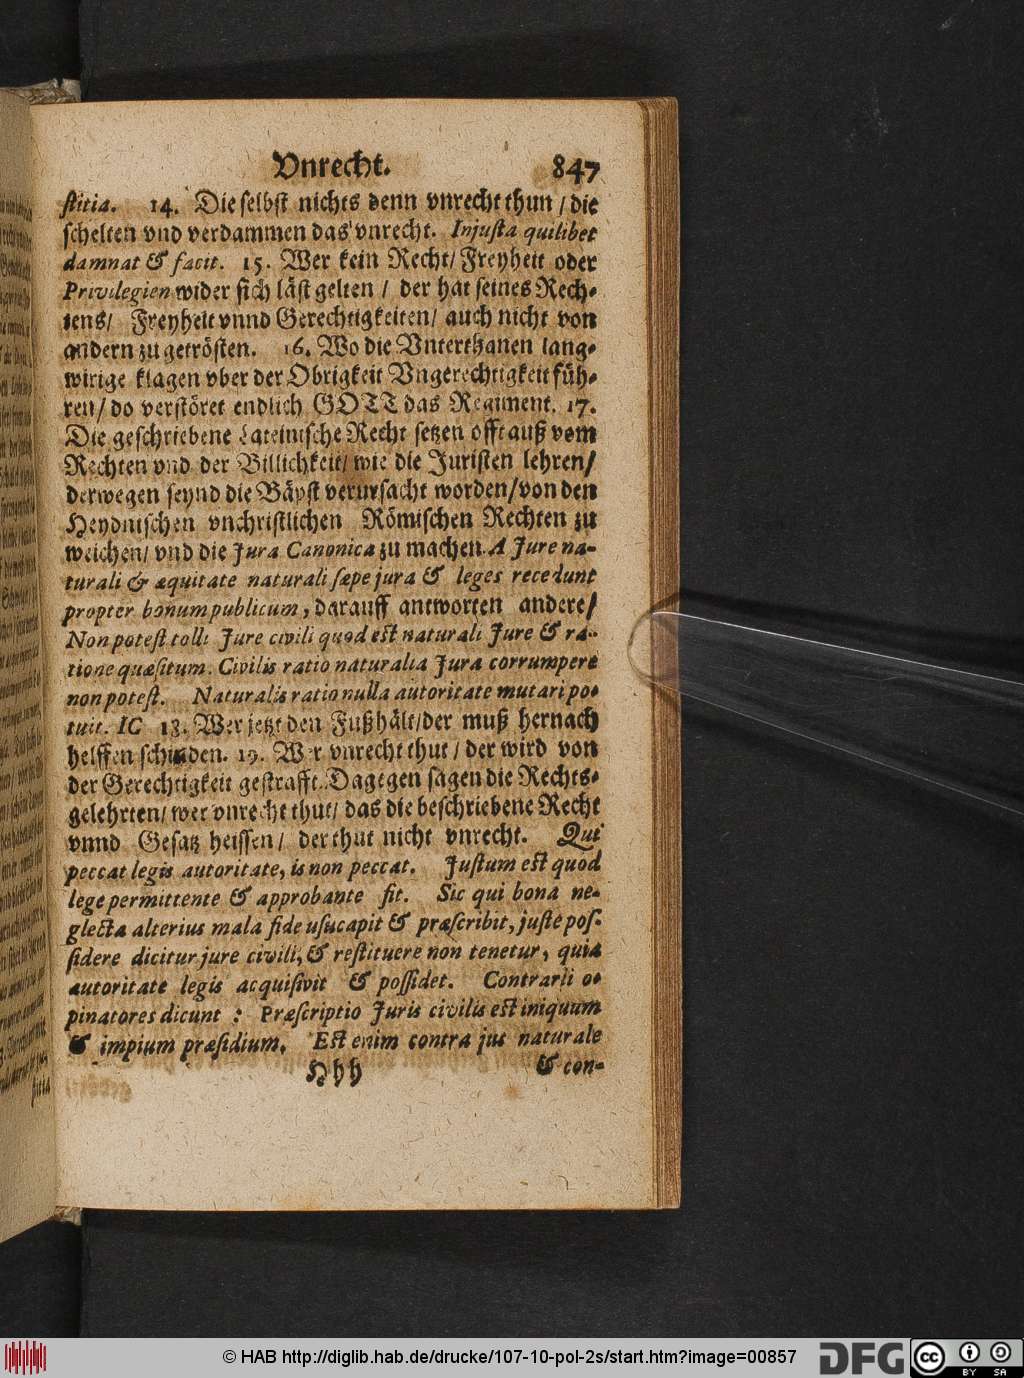 Vnrecht. 847
stitia. 14. Die selbst nichts denn vnrecht thun / die
schelten vnd verdammen das vnrecht. Injusta quilibet
damnat & facit. 15. Wer kein Recht / Freyheit oder
Privilegien wider sich läst gelten / der hat seines Rech-
tens / Freyheit vnnd Gerechtigkeiten / auch nicht von
andern zu getrösten. 16. Wo die Vnterthanen lang-
wirige klagen vber der Obrigkeit Vngerechtigkeit füh-
ren / do verstöret endlich GOTT das Regiment. 17.
Die geschriebene Lateinische Recht setzen offt auß vom
Rechten vnd der Billichkeit / wie die Juristen lehren /
derwegen seynd die Bäpst verursacht worden / von den
Heydnischen vnchristlichen Römischen Rechten zu
weichen / vnd die Jura Canonica zu machen. A Jure na-
turali & æquitate naturali sæpe jura & leges recedunt
propter bonum publicum, darauff antworten andere /
Non potest tolli Jure civili quod est naturali Jure & ra-
tione quæsitum. Civilis ratio naturalia Jura corrumpere
non potest. Naturalis ratio nulla autoritate mutari po-
tuit. IC 18. Wer jetzt den Fuß hält / der muß hernach
helffen schinden. 19. Wer vnrecht thut / der wird von
der Gerechtigkeit gestrafft. Dagegen sagen die Rechts-
gelehrten / wer vnrecht thut / das die beschriebene Recht
vnnd Gesatz heissen / der thut nicht vnrecht. Qui
peccat legis autoritate, is non peccat. Justum est quod
lege permittente & approbante fit. Sic qui bona ne-
glecta alterius mala fide usucapit & præscribit, juste pos-
sidere dicitur jure civili, & restituere non tenetur, quia
autoritate legis acquisivit & possidet. Contrarii o-
pinatores dicunt : Præscriptio Juris civilis est iniquum
& impium præsidium. Est enim contra jus naturale
Hhh & con-
© HAB http://diglib.hab.de/drucke/107-10-pol-2s/start.htm?image=00857 DFG cc BY SA